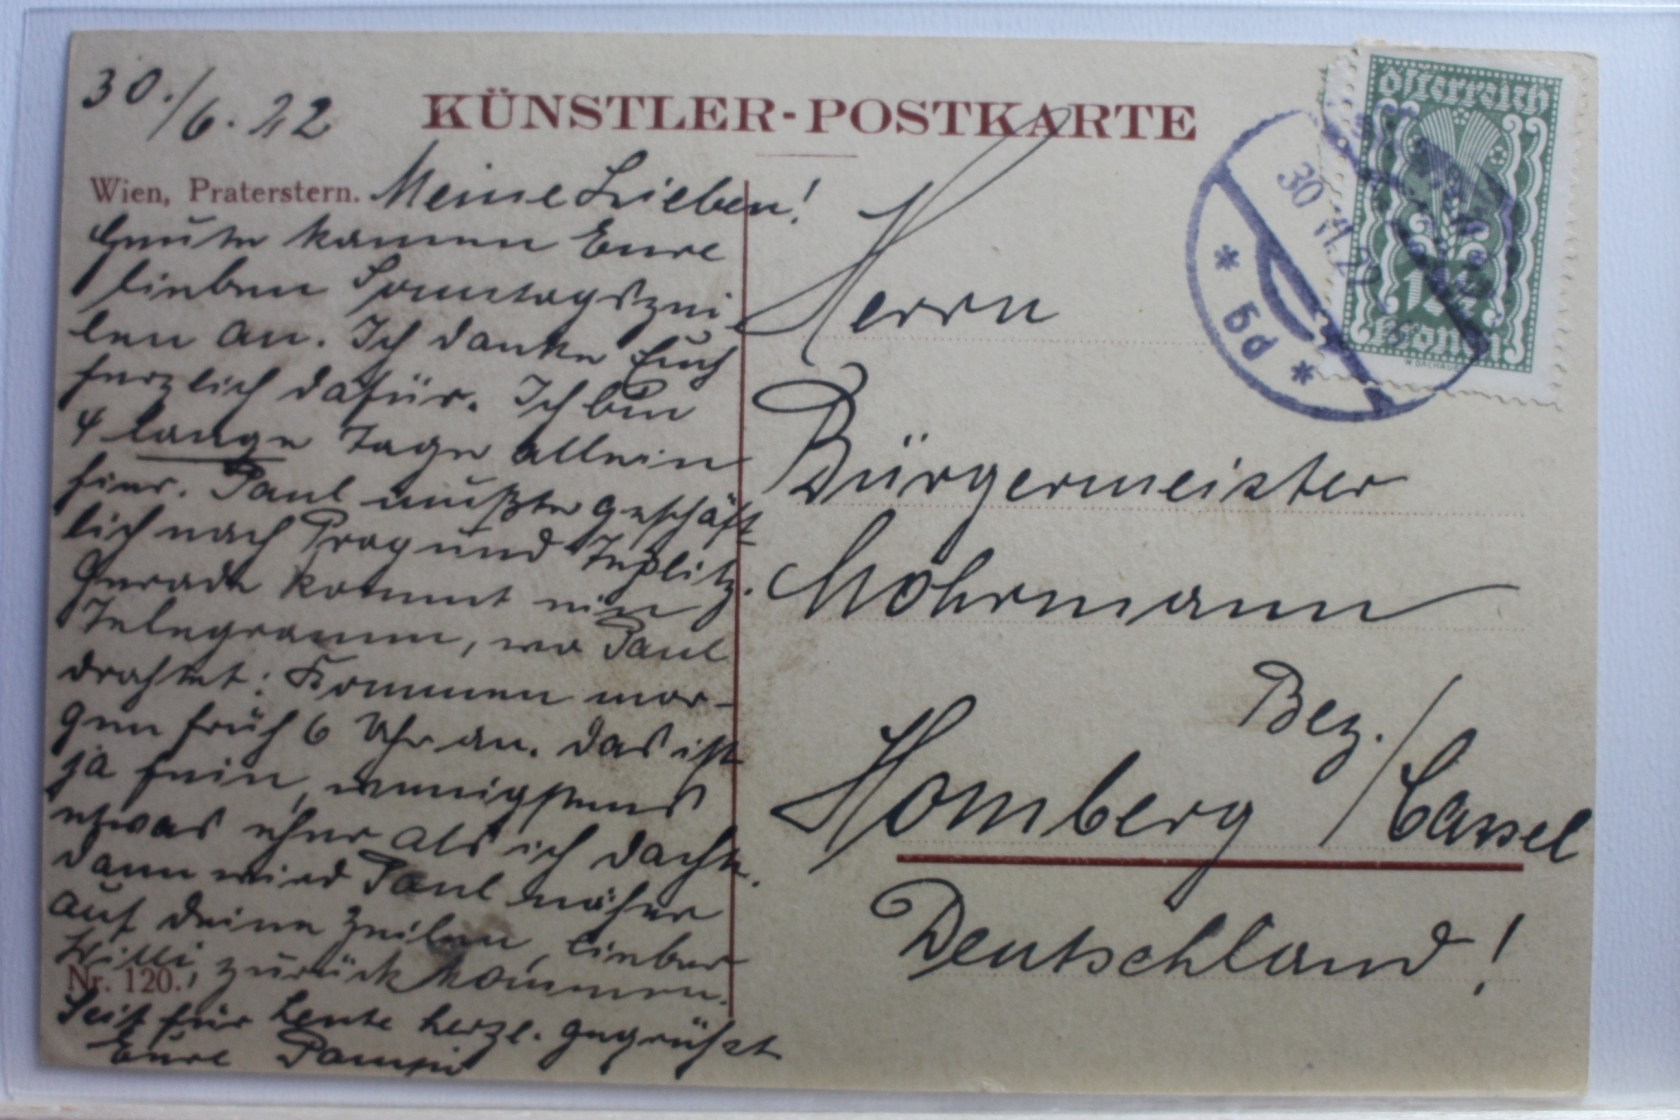 30./6.22
KÜNSTLER-POSTKARTE
Wien, Praterstern.
Meine Lieben!
Heute kamen Eure
lieben Sonntagszei-
len an. Ich danke Euch
herzlich dafür. Ich bin
4 lange Tage allein
hier. Paul mußte geschäft
lich nach Prag und Teplitz.
Gerade kommt ein
Telegramm, wo Paul
drahtet: Kommen mor-
gen früh 6 Uhr an. Das ist
ja fein, wenigstens
etwas eher als ich dachte.
Dann wird Paul näher
auf Deine Zeilen, lieber
Willi, zurück kommen.
Seit für heute herzl. gegrüßt
Eure
Nr. 120.
Herrn
Bürgermeister
Möhrmann
Bez./Cassel
Homberg
Deutschland!
österreich
kronen
30
* 5d *